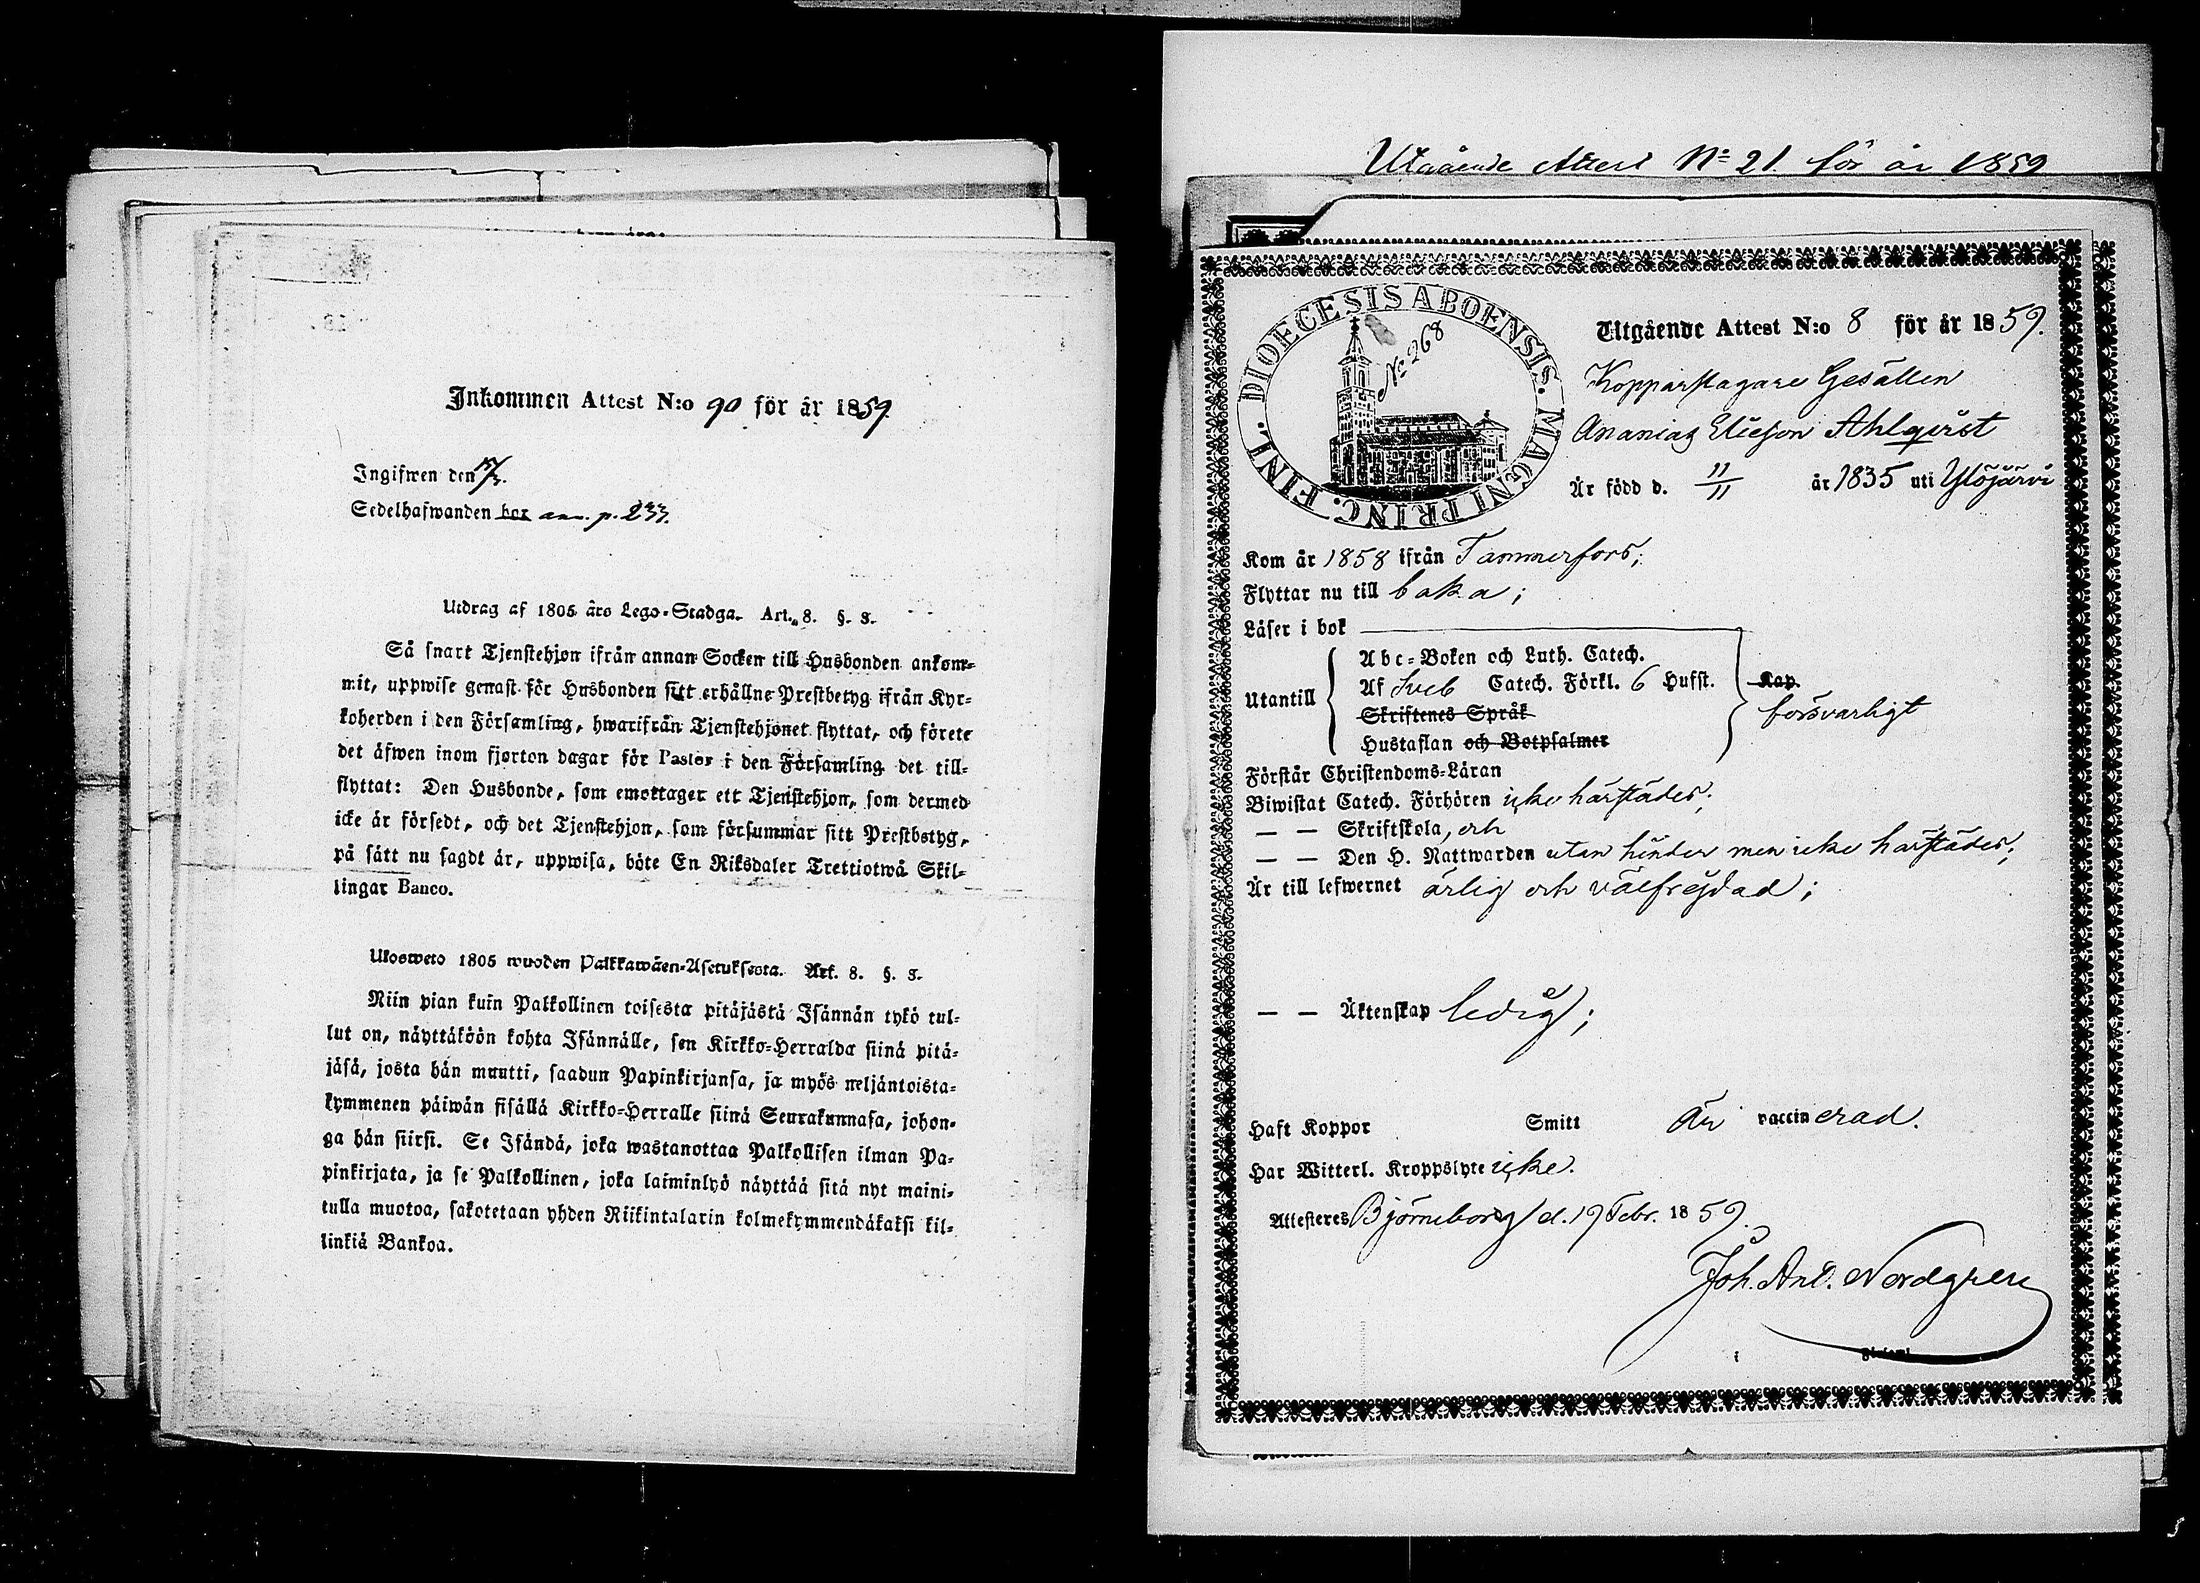 Inkommen Attest N:o 90 för år 1859.
Ingifwen den
Sedelhafwanden bor ann. p. 233.
Utdrag af 1805 års Lego-Stadga. Art. 8. §. 3.
Så snart Tjenstehjon ifrån annan Socken till Husbonden ankom-
mit, uppwise genast för Husbonden sitt erhållne Prestbetyg ifrån Kyr-
koherden i den Församling, hwarifrån Tjenstehjonet flyttat, och förete
det äfwen inom fjorton dagar för Pastor i den Församling det till-
flyttat: Den Husbonde, som emottager ett Tjenstehjon, som dermed
icke är försedt, och det Tjenstehjon, som försummar sitt Prestbetyg,
på sätt nu sagdt är, uppwisa, böte En Riksdaler Trettiotwå Skil-
lingar Banco.
Ulosweto 1805 wuoden Palkkawäen-Asetuksesta. Art. 8. §. 3.
Niin pian kuin Palkollinen toisesta pitäjästä Isännän tykö tul-
lut on, näyttäköön kohta Isännälle, sen Kirkko-Herralda siinä pitä-
jäsä, josta hän muutti, saadun Papinkirjansa, ja myös neljäntoista-
kymmenen päiwän sisällä Kirkko-Herralle siinä Seurakunnasa, johon-
ga hän siirsi. Se Isändä, joka wastanottaa Palkollisen ilman Pa-
pinkirjata, ja se Palkollinen, joka laiminlyö näyttää sitä nyt maini-
tulla muotoa, sakotetaan yhden Riikintalarin kolmekymmendäkaksi kil-
linkiä Bankoa.
Utgående Attest No 21. för år 1859
DIOECESIS ABOENSIS. MAGNI PRINC. FINL.
No 268
Utgående Attest N:o 8 för år 1859.
Kopparslagare Gesällen
Ananias Elieson Ahlqvist
Är född d. 11/11 år 1835 uti Ylöjärvi
Kom år 1858 ifrån Tammerfors;
Flyttar nu till baka;
Läser i bok
Abc-Boken och Luth. Catech.
Utantill Af Sveb Catech. Förkl. 6 Hufst. Kap.
Skriftenes Språk försvarligt
Hustaflan och Botpsalmer
Förstår Christendoms-Läran
Biwistat Catech. Förhören icke härstädes;
— — Skriftskola, och
— — Den H. Nattwarden utan hinder men icke härstädes;
Är till lefwernet ärlig och välfrejdad;
— — Äktenskap ledig;
Haft Koppor Smitt Är vaccinerad.
Har Witterl. Kroppslyte icke.
Attesteres Björneborg d. 19 Febr. 1859.
Joh. And. Nordgren
i